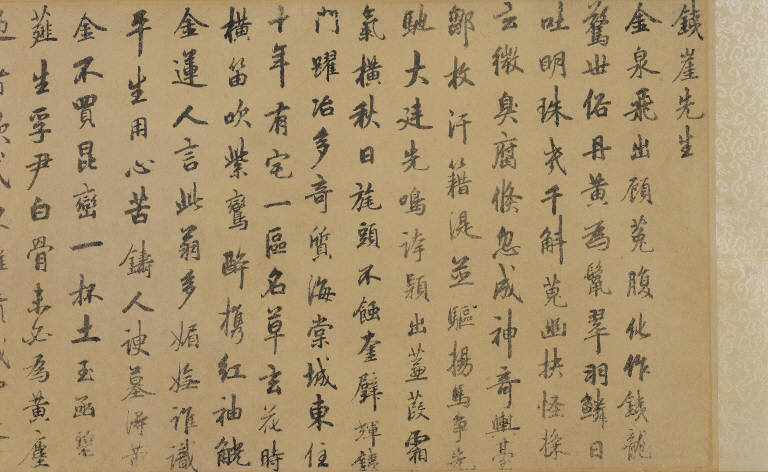 鐵崖先生
金泉飛出顧菟腹化作鐵龍
驚世俗丹黃為鬣翠羽鱗日
吐明珠光千斛蒐幽抉怪採
玄微臭腐倏忽成神奇輿臺
鄒枚汗籍湜並驅揚馬爭先
馳大廷先鳴誇穎出蒹葭霜
氣橫秋日旄頭不蝕奎璧輝鏌
門躍冶多奇質海棠城東住
十年有宅一區名草玄花時
橫笛吹紫鸞醉攜紅袖觥
金蓮人言此翁多媚嫵誰識
平生用心苦鑄人諛墓
金不買昆巒一杯土玉函
薤生孚尹白骨未必為黃塵